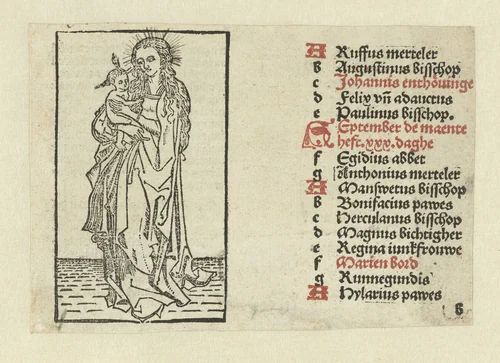 A Ruffus merteler
b Augustinus bisschop
c Johannis enthöuinge
d Felix vn̄ adauctus
e Paulinus bisschop.
September de maente
heft .xxx. daghe
f Egidius abbet
g Anthonius merteler
A Manswetus bisschop
b Bonifacius pawes
c Herculanus bisschop
d Magnus bichtigher
e Regina iunkfrouwe
f Marien bord
g Kunnegundis
A Hylarius pawes
b